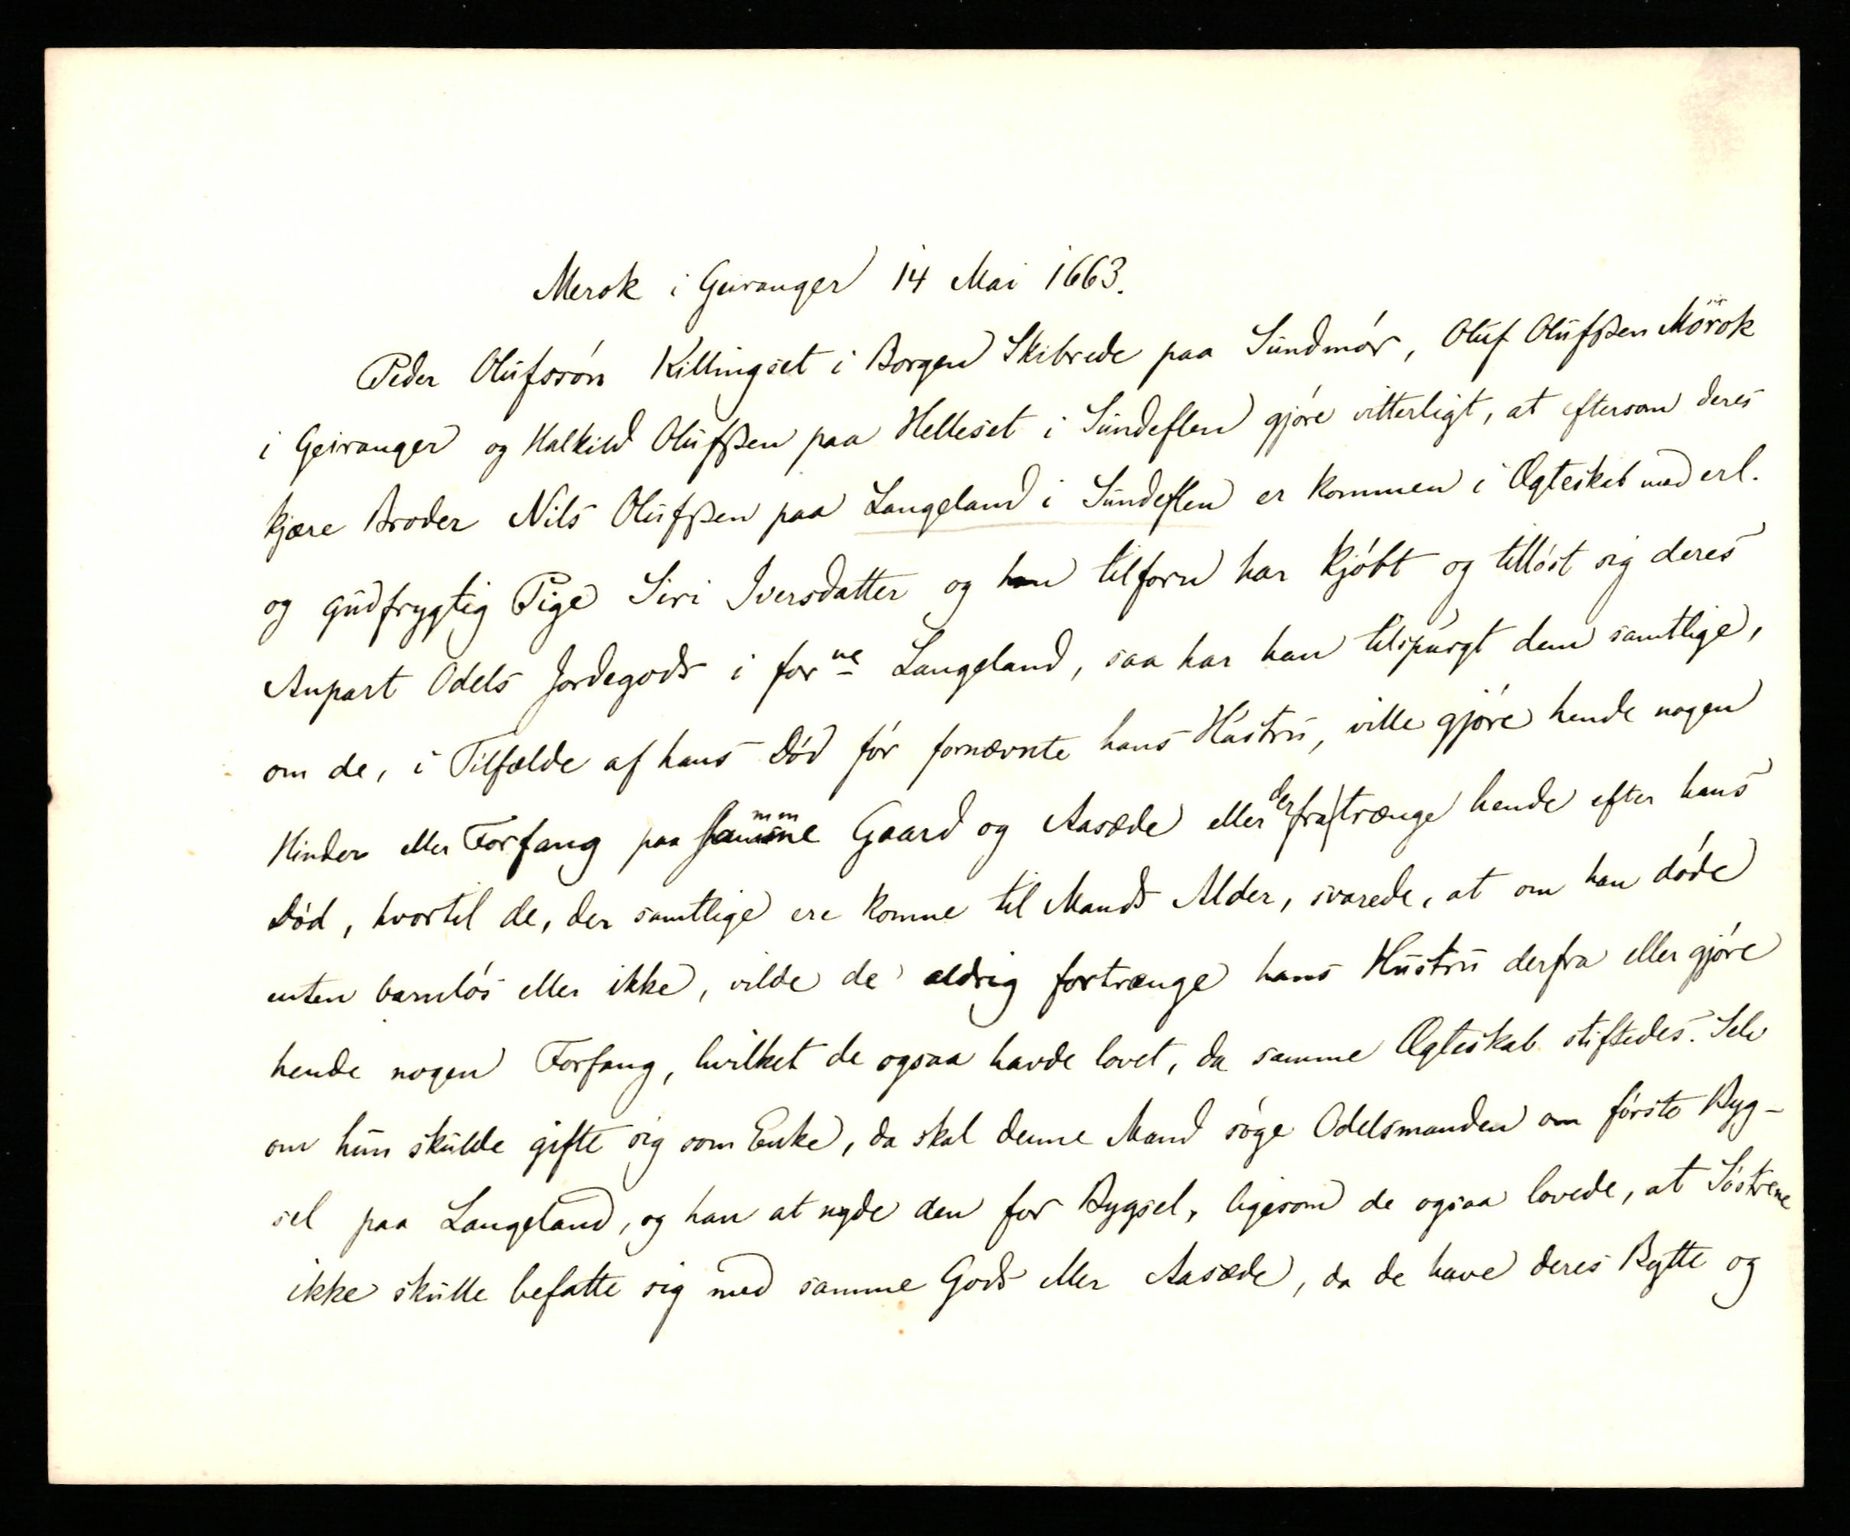 Merok i Geiranger 14 Mai 1663.
Peder Olufssøn Killingset i Borgen Skibrede paa Sundmør, Oluf Olufssen Mørok
i Geiranger og Halkild Olufssen paa Helleset i Sundeflen gjøre vitterligt, at eftersom deres
kjære Broder Nils Olufssen paa Langeland i Sundeflen er kommen i Ægteskab med erl.
og gudfrygtig Pige Siri Iversdatter og han tilforn har kjøbt og tilløst sig deres
Anpart Odels Jordegods i forne Langeland, saa har han tilspurgt dem samtlige,
om de, i Tilfælde af hans Død før fornævnte hans Hustru, ville gjøre hende nogen
Hinder eller Forfang paa samme Gaard og Aasæde eller derfra trænge hende efter hans
Død, hvortil de, der samtlige ere komne til Mands Alder, svarede, at om han døde
enten barnløs eller ikke, vilde de aldrig fortrænge hans Hustru derfra eller gjøre
hende nogen Forfang, hvilket de ogsaa havde lovet, da samme Ægteskab stiftedes. Selv
om hun skulde gifte sig som Enke, da skal denne Mand søge Odelsmanden om første Byg-
sel paa Langeland, og han at nyde den for Bygsel, ligesom de ogsaa lovede, at Søstrene
ikke skulle befatte sig med samme Gods eller Aasæde, da de have deres Bytte og